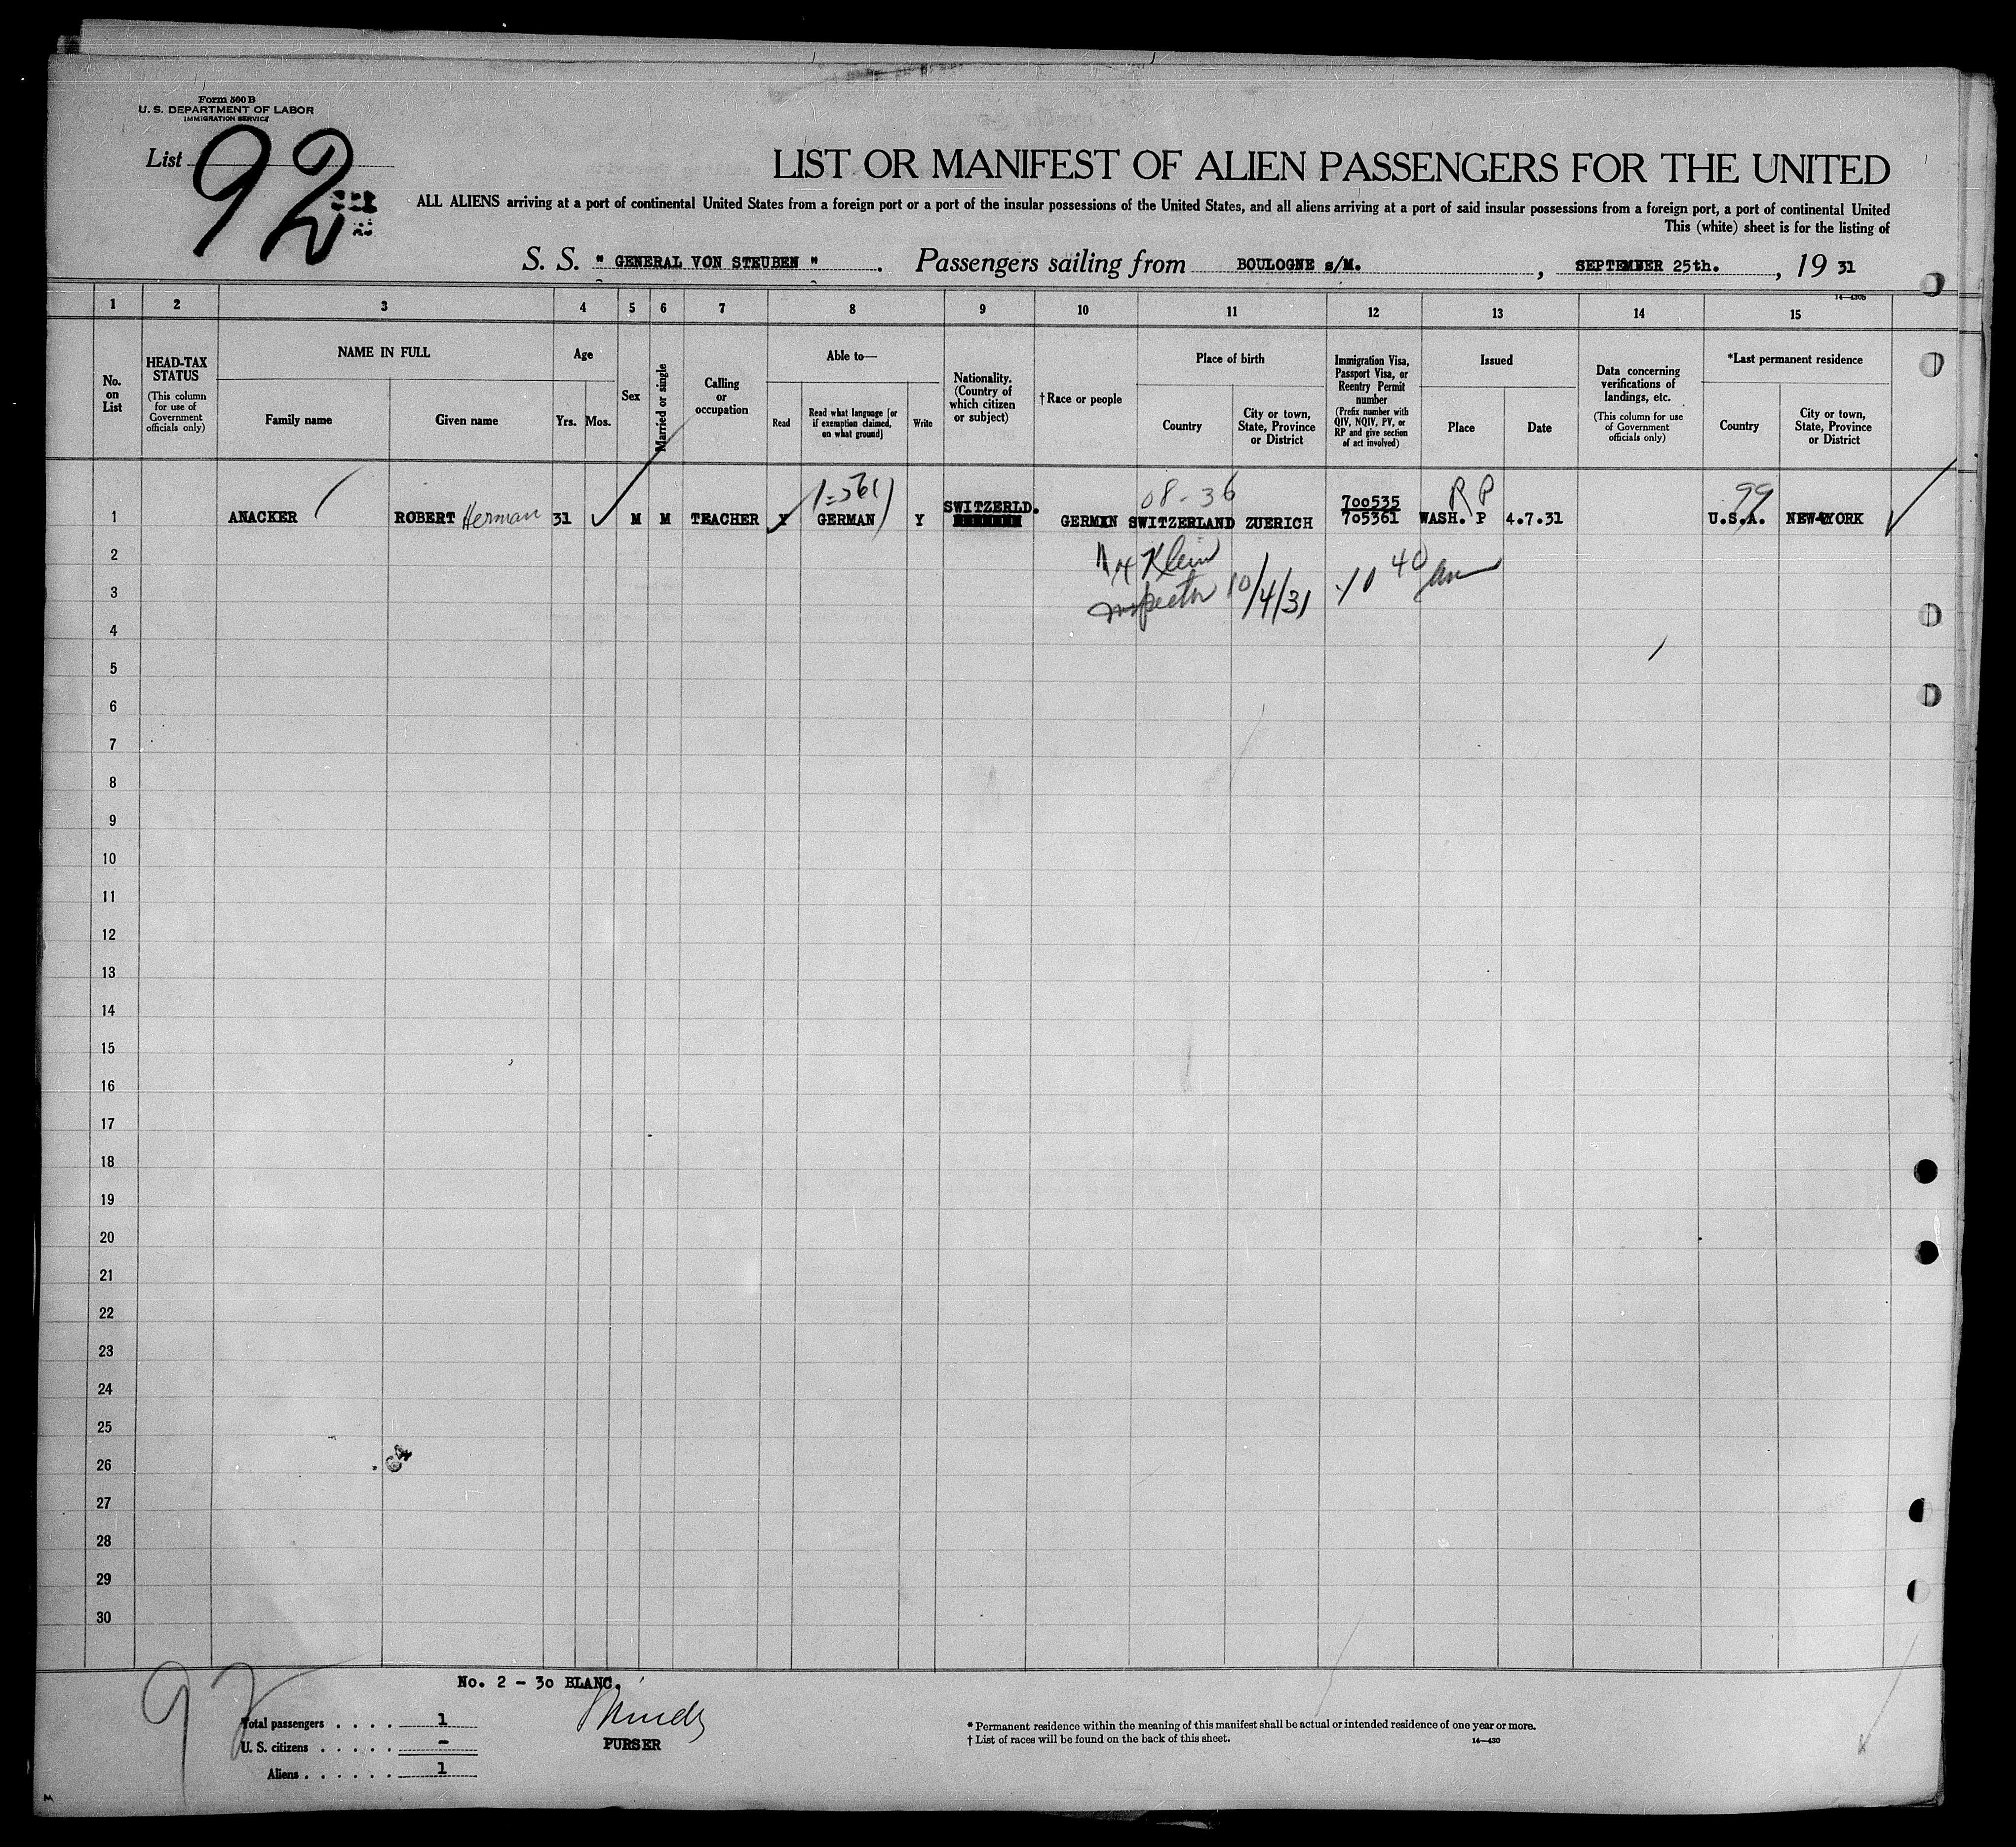 Form 500 B
U. S. DEPARTMENT OF LABOR
IMMIGRATION SERVICE
List 92
LIST OR MANIFEST OF ALIEN PASSENGERS FOR THE UNITED
ALL ALIENS arriving at a port of continental United States from a foreign port or a port of the insular possessions of the United States, and all aliens arriving at a port of said insular possessions from a foreign port, a port of continental United
This (white) sheet is for the listing of
S. S. " GENERAL VON STEUBEN " . Passengers sailing from BOULOGNE s/M. , SEPTEMBER 25th. , 19 31
14—430b
1 2 3 4 5 6 7 8 9 10 11 12 13 14 15
No. on List
HEAD-TAX STATUS
(This column for use of Government officials only)
NAME IN FULL
Family name
Given name
Age
Yrs.
Mos.
Sex
Married or single
Calling or occupation
Able to—
Read
Read what language [or if exemption claimed, on what ground]
Write
Nationality. (Country of which citizen or subject)
†Race or people
Place of birth
Country
City or town, State, Province or District
Immigration Visa, Passport Visa, or Reentry Permit number
(Prefix number with QIV, NQIV, PV, or RP and give section of act involved)
Issued
Place
Date
Data concerning verifications of landings, etc.
(This column for use of Government officials only)
*Last permanent residence
Country
City or town, State, Province or District
08-36 RP 99
SWITZERLD. 700535
1 ANACKER ROBERT Herman 31 M M TEACHER Y GERMAN Y GERMAN SWITZERLAND ZUERICH 705361 WASH. P 4.7.31 U.S.A. NEW-YORK
2 Klein
3 Inspector 10/4/31 10 40 am
4
5
6
7
8
9
10
11
12
13
14
15
16
17
18
19
20
21
22
23
24
25
26
27
28
29
30
92
No. 2 - 30 BLANC.
Total passengers . . . . 1
U. S. citizens . . . . . —
Aliens . . . . . . 1
PURSER
* Permanent residence within the meaning of this manifest shall be actual or intended residence of one year or more.
† List of races will be found on the back of this sheet.
14—430